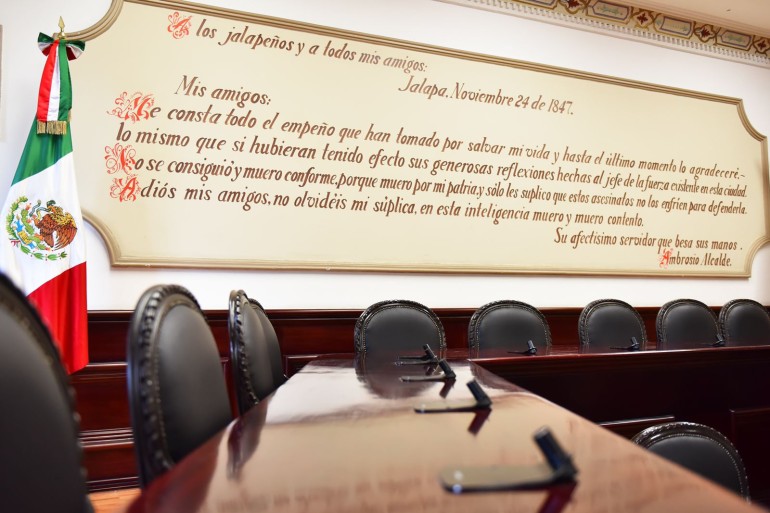 A los jalapeños y a todos mis amigos:
Jalapa, Noviembre 24 de 1847.
Mis amigos:
Me consta todo el empeño que han tomado por salvar mi vida y hasta el último momento lo agradeceré.-
lo mismo que si hubieran tenido efecto sus generosas reflexiones hechas al jefe de la fuerza existente en esta ciudad.
No se consiguió y muero conforme, porque muero por mi patria, y sólo les suplico que estos asesinatos no los enfrien para defenderla.
Adiós mis amigos, no olvidéis mi súplica, en esta inteligencia muero y muero contento.
Su afectísimo servidor que besa sus manos.
Ambrosio Alcalde.